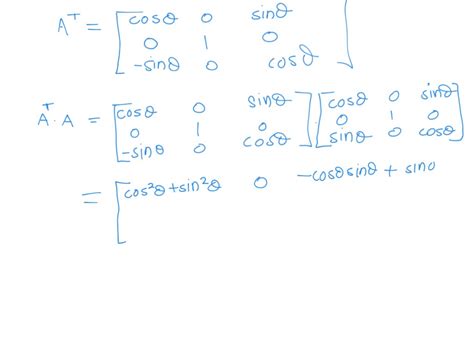 Aᵀ = [ cosθ 0 sinθ
0 1 0
-sinθ 0 cosθ ]
Aᵀ · A = [ cosθ 0 sinθ ] [ cosθ 0 sinθ ]
0 1 0 0 1 0
-sinθ 0 cosθ sinθ 0 cosθ
= [ cos²θ + sin²θ 0 -cosθ sinθ + sinθ